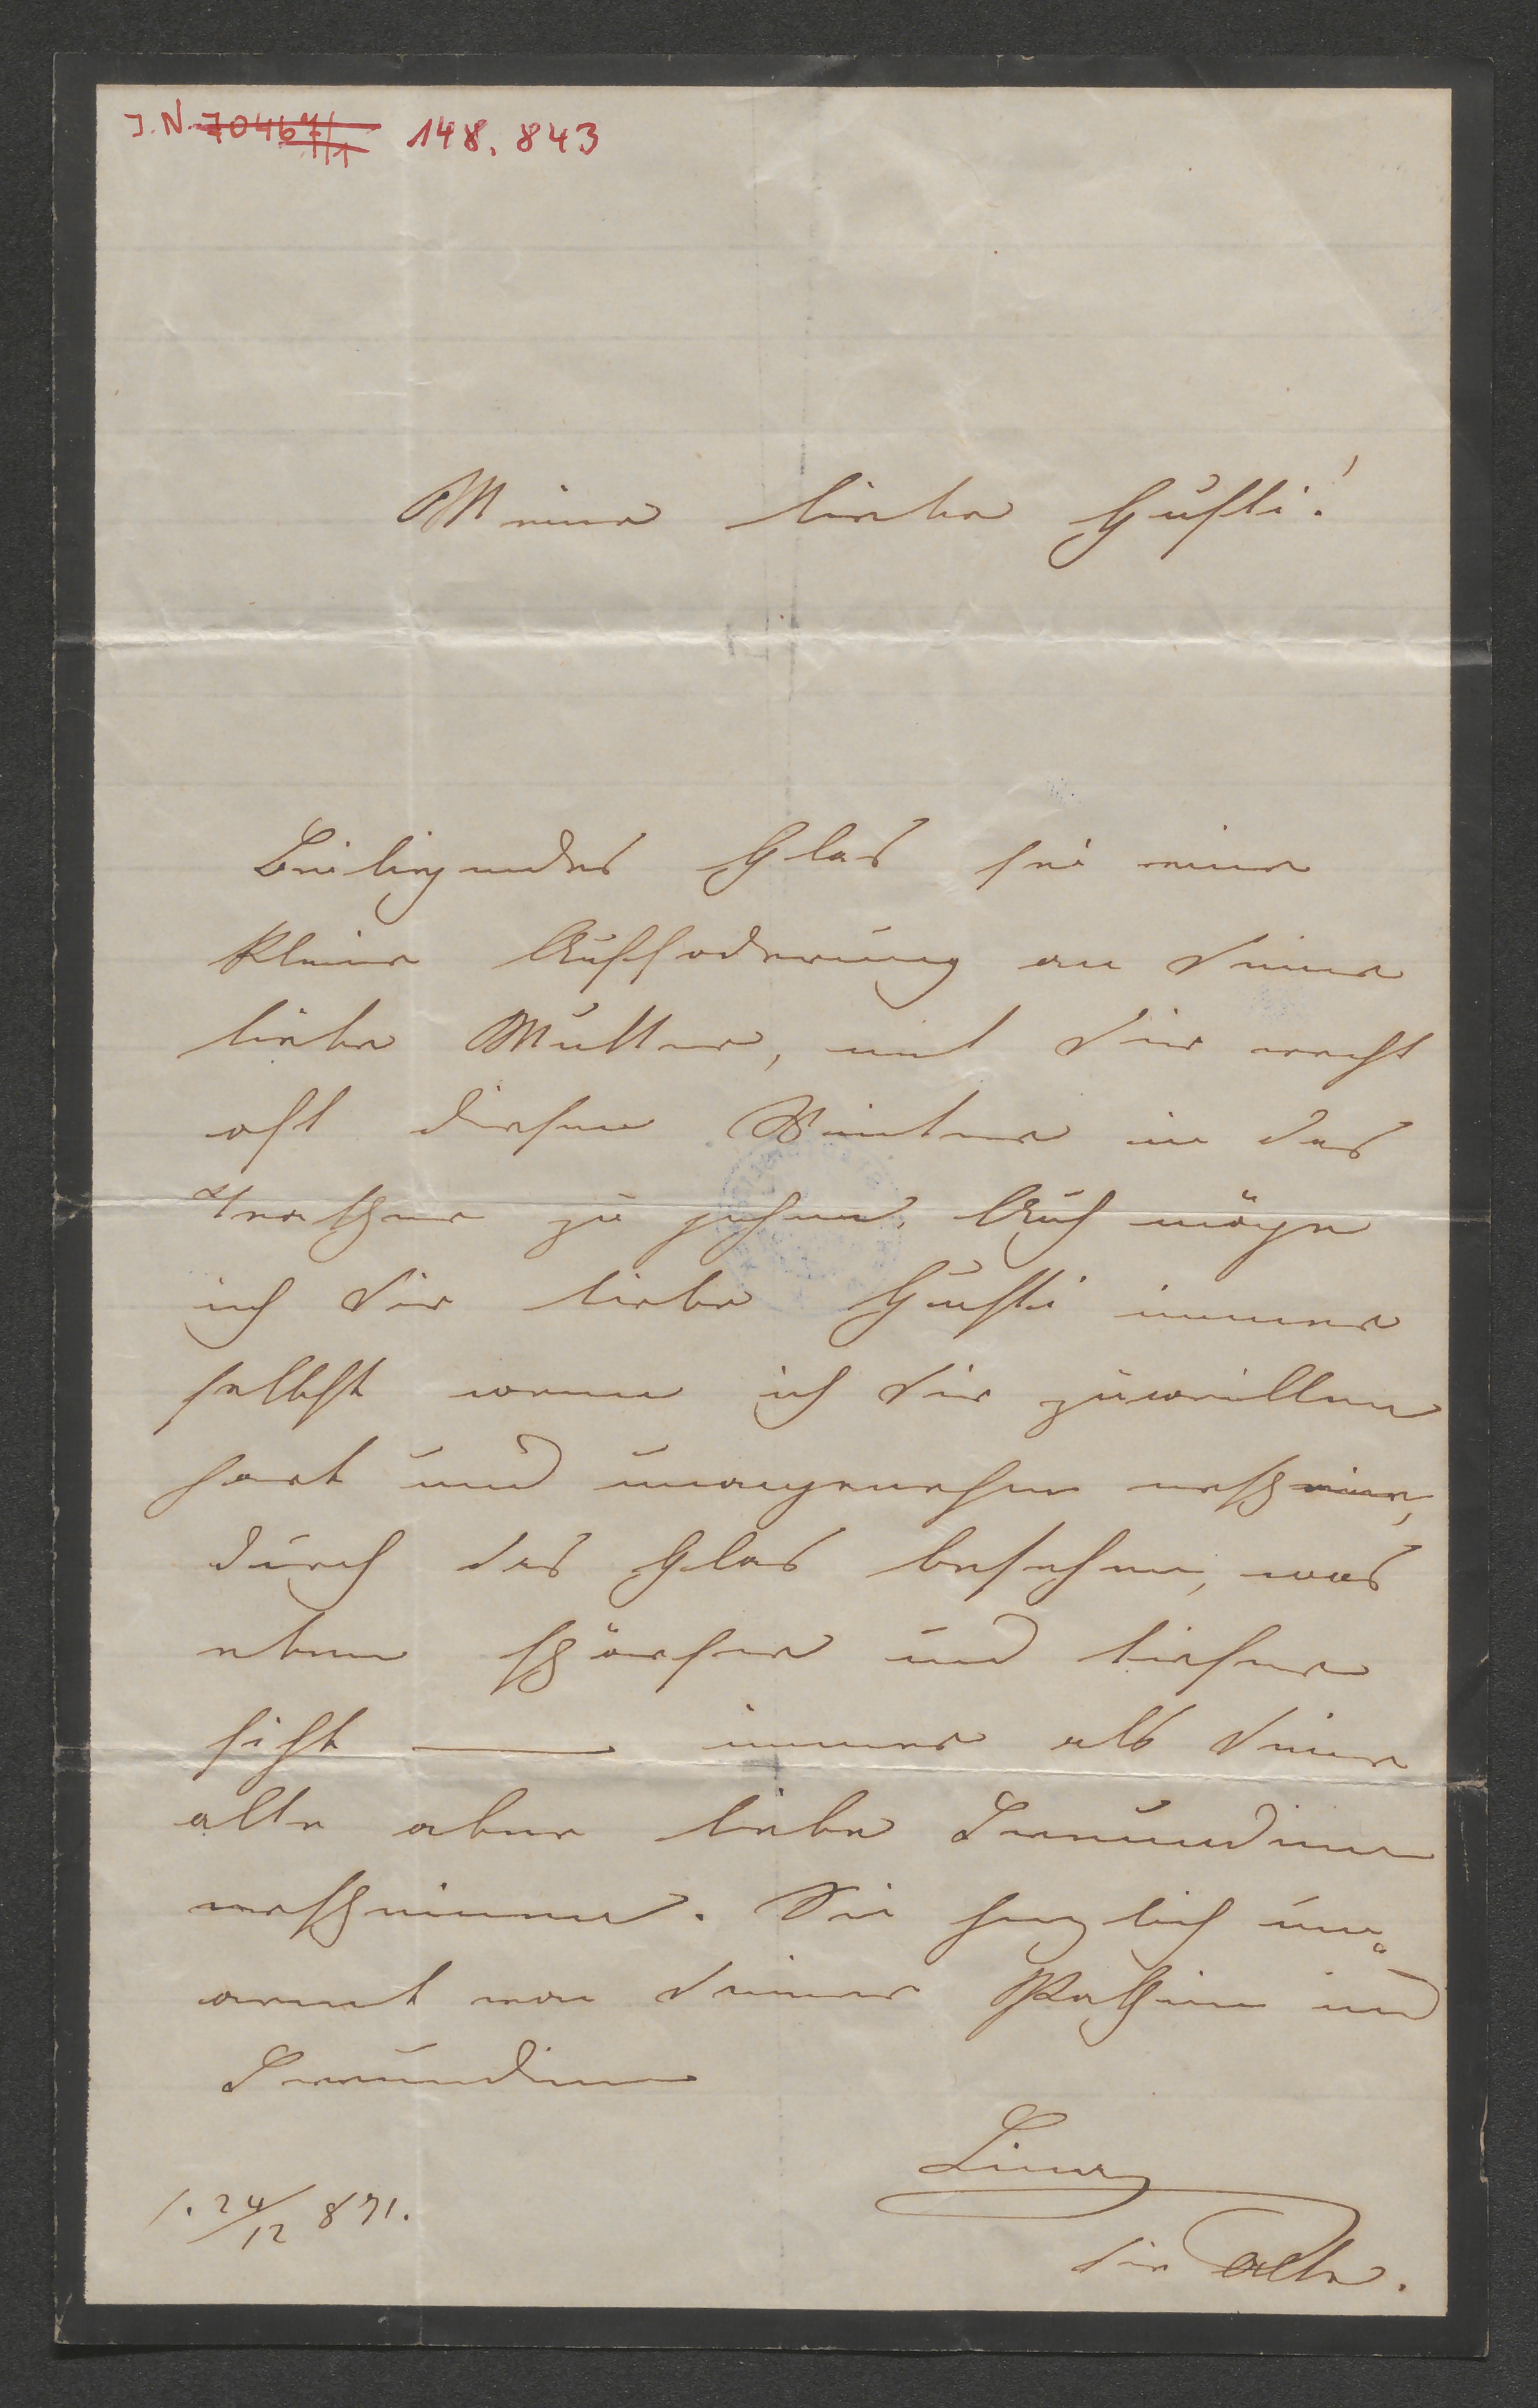 J.N. 70467/1 148.843
Meine liebe Gusti!
Beiliegendes Glas sei eine
kleine Aufforderung an Deine
liebe Mutter, mit Dir recht
oft diesen Winter in das
Theater zu gehen. Auch möge
ich Dir liebe Gusti immer
selbst wenn ich Dir zuweillen
hart und unangenehm erscheine,
durch das Glas besehen, was
eben schärfer und tiefer
sieht — immer als Deine
alte aber liebe Freundinn
erscheinen. Sei herzlich um-
armt von Deiner Pathin und
Freundinn
Lina
die Alte.
24/12 871.